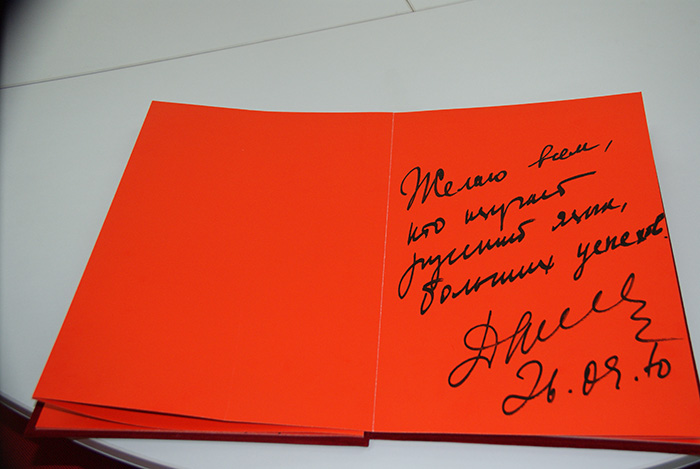 Желаю всем,
кто изучает
русский язык,
больших успехов.
26.09.10